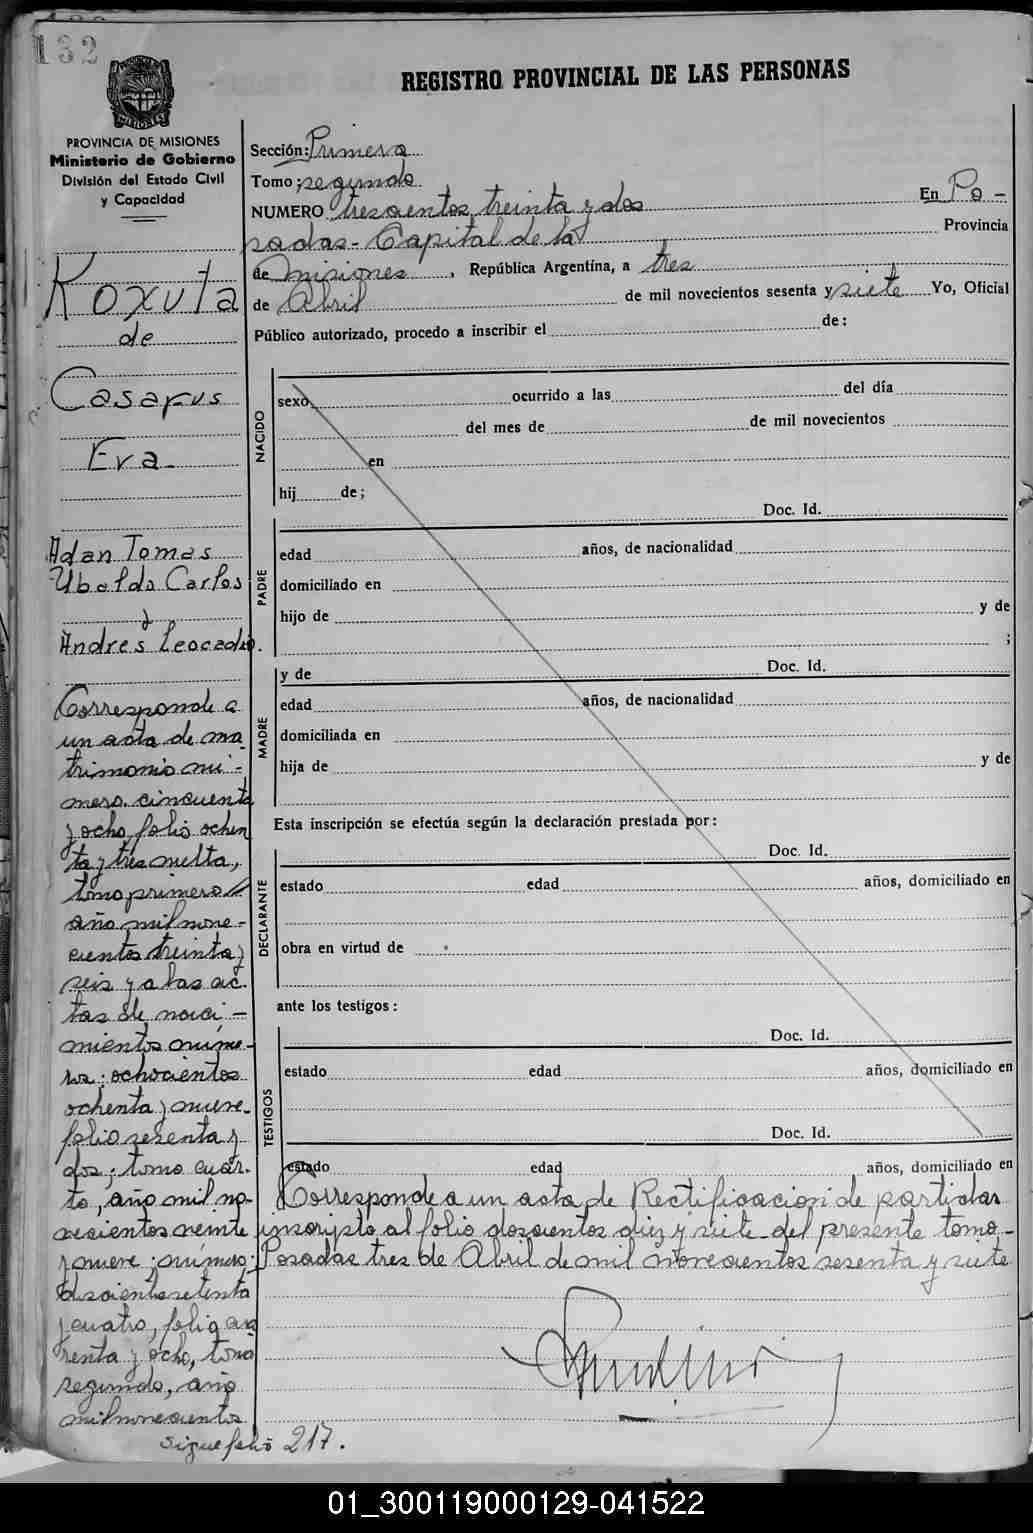 132
REGISTRO PROVINCIAL DE LAS PERSONAS
PROVINCIA DE MISIONES
Ministerio de Gobierno
División del Estado Civil
y Capacidad
Koxuta
de
Casafus
Eva
Adan Tomas
Ubaldo Carlos
y
Andrés Leocadio.
Corresponde a
un acta de ma
trimonio nú-
mero cincuenta
y ocho, folio ochen
ta y tres vuelta,
tomo primero
año mil nove-
cientos treinta y
seis y a las ac
tas de naci-
mientos núme-
ros: ochocientos
ochenta y nueve
folio sesenta y
dos; tomo cuar-
to, año mil no-
vecientos veinte
y nueve; número
doscientos setenta
y cuatro, folio cua
renta y ocho, tomo
segundo, año
mil novecientos
sigue folio 217.
Sección: Primera
Tomo; segundo
NUMERO trescientos treinta y dos En Po-
sadas - Capital de la Provincia
de Misiones, República Argentina, a tres
de Abril de mil novecientos sesenta y siete Yo, Oficial
Público autorizado, procedo a inscribir el de:
NACIDO
sexo, ocurrido a las del día
del mes de de mil novecientos
en
hij de;
Doc. Id.
PADRE
edad años, de nacionalidad
domiciliado en
hijo de y de
;
y de Doc. Id.
MADRE
edad años, de nacionalidad
domiciliada en
hija de y de
Esta inscripción se efectúa según la declaración prestada por:
Doc. Id.
DECLARANTE
estado edad años, domiciliado en
obra en virtud de
ante los testigos:
Doc. Id.
TESTIGOS
estado edad años, domiciliado en
Doc. Id.
estado edad años, domiciliado en
Corresponde a un acta de Rectificación de partidas
inscripto al folio doscientos diez y siete del presente tomo-
Posadas tres de Abril de mil novecientos sesenta y siete
01_300119000129-041522